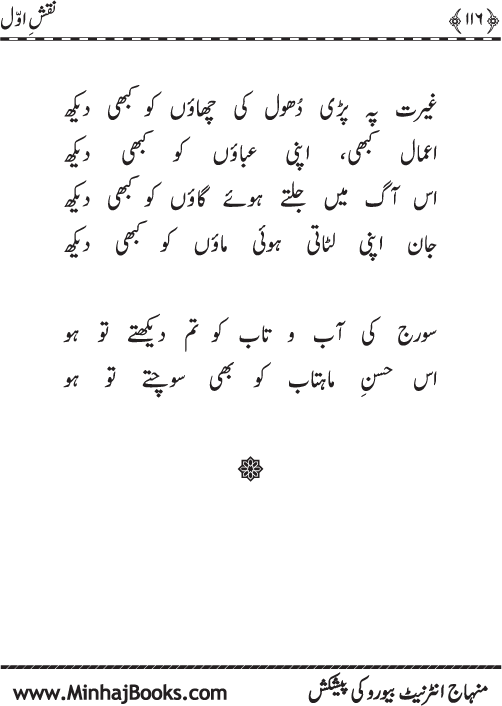 ﴿۱۱۶﴾ نقشِ اوّل
غیرت پہ پڑی دُھول کی چھاؤں کو کبھی دیکھ
اعمال کبھی، اپنی عباؤں کو کبھی دیکھ
اس آگ میں جلتے ہوئے گاؤں کو کبھی دیکھ
جان اپنی لٹاتی ہوئی ماؤں کو کبھی دیکھ
سورج کی آب و تاب کو تم دیکھتے تو ہو
اس حسنِ ماہتاب کو بھی سوچتے تو ہو
منہاج انٹرنیٹ بیورو کی پیشکش www.MinhajBooks.com